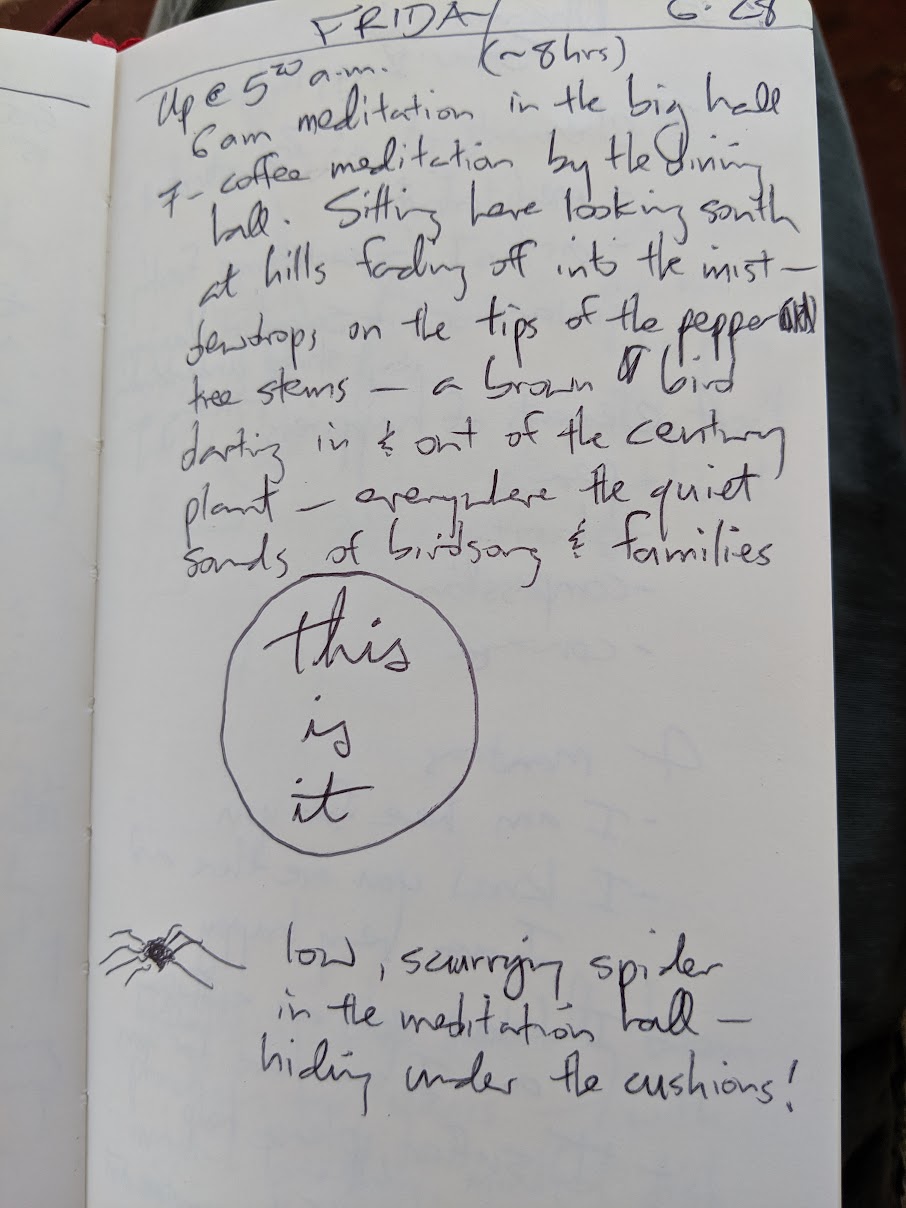 FRIDAY 6·28
Up @ 5²⁰ a.m. (~8hrs)
6am meditation in the big hall
7- coffee meditation by the dining
hall. Sitting here looking south
at hills fading off into the mist —
dewdrops on the tips of the pepper
tree stems — a brown bird
darting in & out of the century
plant — everywhere the quiet
sounds of birdsong & families
this
is
it
low, scurrying spider
in the meditation hall —
hiding under the cushions!